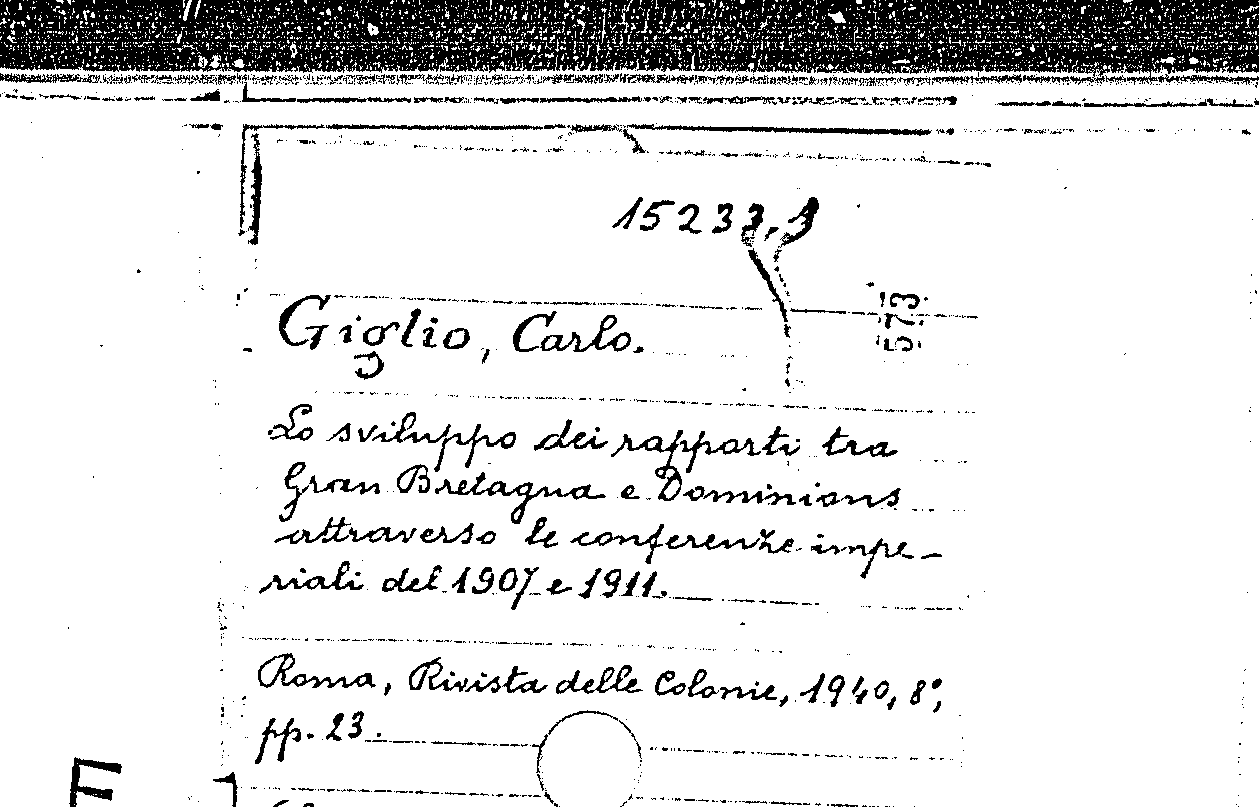 15233,9
573
Giglio, Carlo.
Lo sviluppo dei rapporti tra
Gran Bretagna e Dominions
attraverso le conferenze impe-
riali del 1907 e 1911.
Roma, Rivista delle Colonie, 1940, 8°,
pp. 23.
E